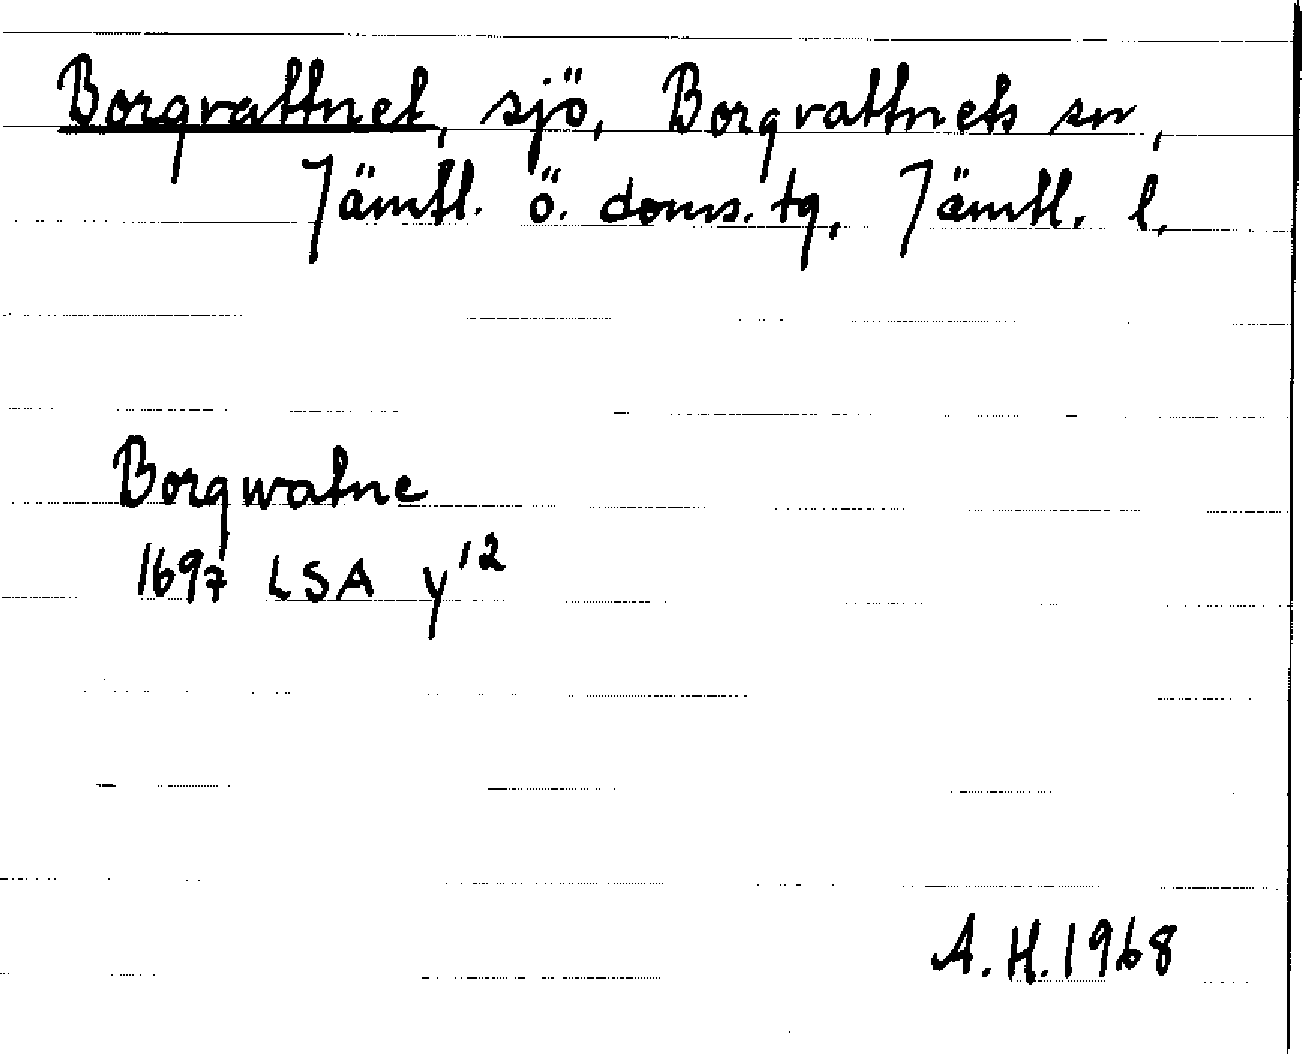 Borgvattnet, sjö, Borgvattnets sn,
Jämtl. ö. doms. tg, Jämtl. l.
Borgwatne
1697 LSA y12
A.H. 1968